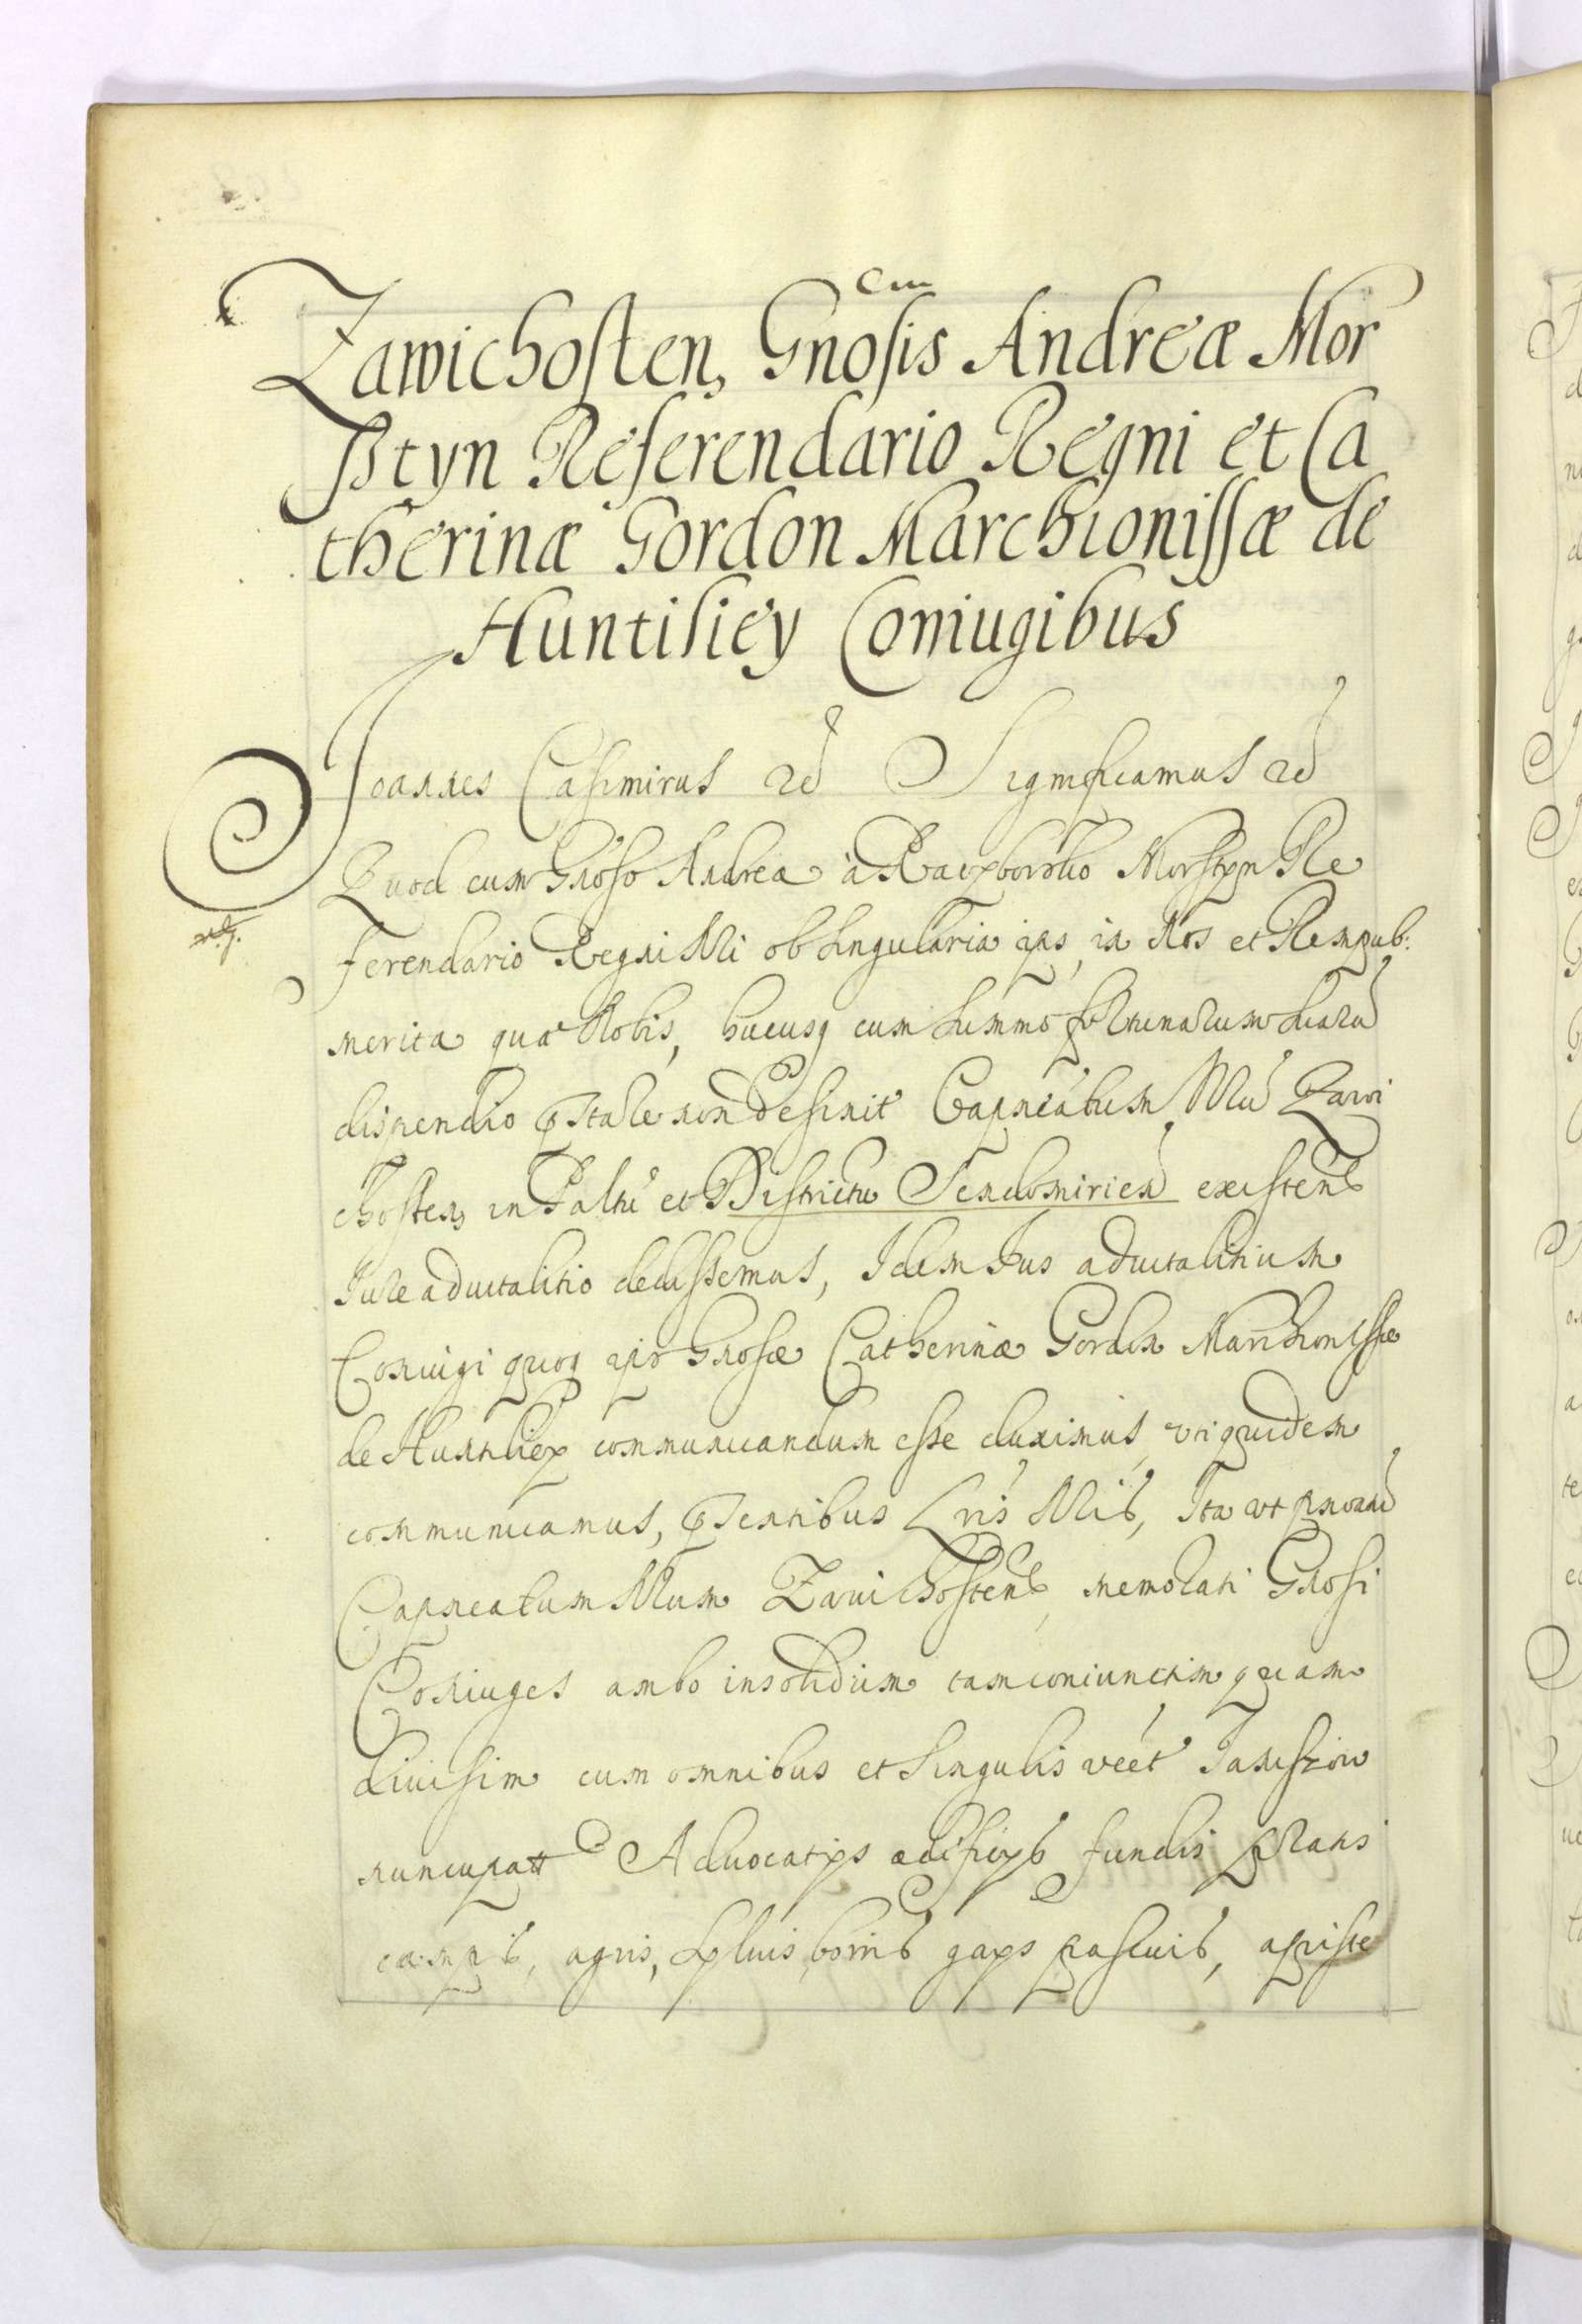 Zawichosten, Gnosis Andreæ Mor
sztyn Referendario Regni et Ca
therinæ Gordon Marchionissæ de
Huntiliey Coniugibus
Ioannes Casimirus Significamus
Quod cum Gnoso Andrea à Raciborsko Morstyn Re
ferendario Regni Nri ob singularia ips, in Nos et Rempub:
merita quæ Nobis, hucusq cum summo fortunarum suarū
dispendio pstare non desinit Capneatum Nrū Zawi
chosten, in Paltu et Districtu Sendomirien existens
Iure aduitalitio dedissemus, Idem Ius aduitalitium
Coniugi quoq ips Gnosæ Catherinæ Gordon Marchionissæ
de Huntiliey communicandum esse duximus, uti quidem
communicamus, psentibus Lris Nris, Ita ut
Capneatum Nrum Zawichostens, memorati Gnosi
Coniuges ambo insolidum tam coniunctim quam
diuisim cum omnibus et singulis
nuncupatt Aduocatys ædificys fundis pratis
campis, agris, syluis, gays pascuis, apiste